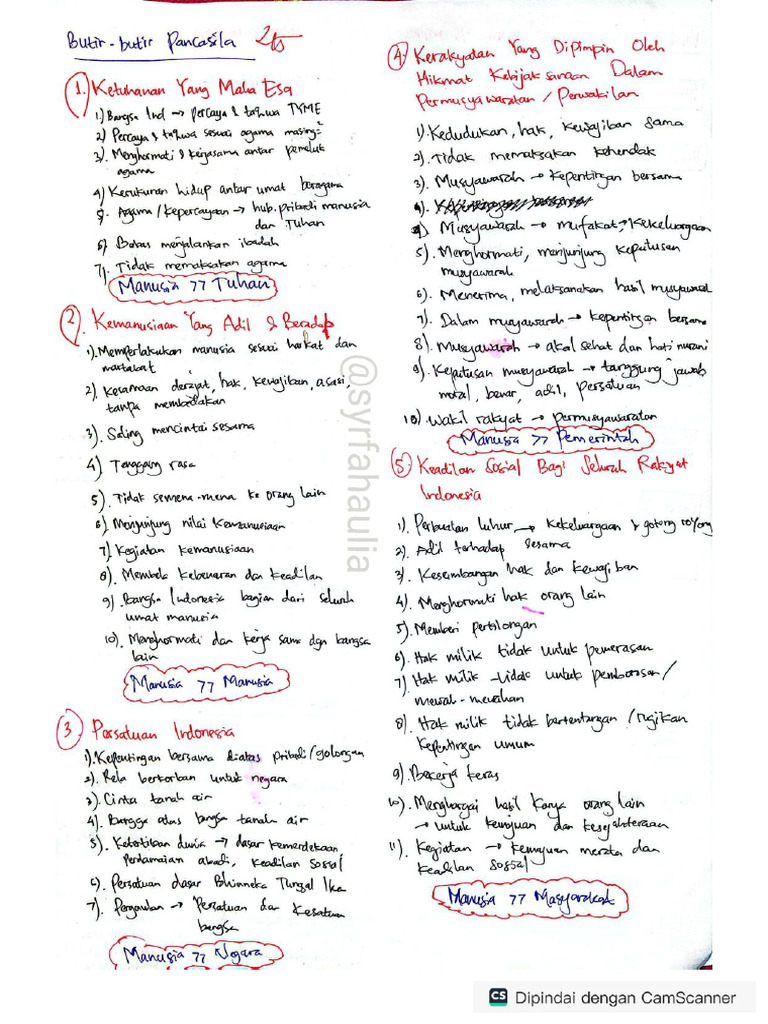 Butir-butir Pancasila
1. Ketuhanan Yang Maha Esa
1) Bangsa Ind → percaya & takwa TYME
2) Percaya & takwa sesuai agama masing²
3). Menghormati & kerjasama antar pemeluk
agama
4) Kerukunan hidup antar umat beragama
5. Agama / kepercayaan → hub. pribadi manusia
dan Tuhan
6) Bebas menjalankan ibadah
7). Tidak memaksakan agama
Manusia 77 Tuhan
2. Kemanusiaan Yang Adil & Beradab
1). Memperlakukan manusia sesuai harkat dan
martabat
2). Kesamaan derajat, hak, kewajiban, asasi,
tanpa membedakan
3). Saling mencintai sesama
4) Tenggang rasa
5). Tidak semena-mena ke orang lain
6). Menjunjung nilai kemanusiaan
7) Kegiatan kemanusiaan
8). Membela kebenaran dan keadilan
9). Bangsa Indonesia bagian dari seluruh
umat manusia
10). Menghormati dan kerja sama dgn bangsa
lain
Manusia 77 Manusia
3. Persatuan Indonesia
1). Kepentingan bersama diatas pribadi/golongan
2). Rela berkorban untuk negara
3). Cinta tanah air
4). Bangga atas bangsa tanah air
5). Ketertiban dunia → dasar kemerdekaan
Perdamaian abadi, keadilan sosial
6). Persatuan dasar Bhinneka Tunggal Ika
7). Pergaulan → Persatuan dan Kesatuan
bangsa
Manusia 77 Negara
4. Kerakyatan Yang Dipimpin Oleh
Hikmat Kebijaksanaan Dalam
Permusyawaratan / Perwakilan
1). Kedudukan, hak, kewajiban sama
2). Tidak memaksakan kehendak
3). Musyawarah → kepentingan bersama
4) Musyawarah → mufakat, kekeluargaan
5). Menghormati, menjunjung keputusan
musyawarah
6). Menerima, melaksanakan hasil musyawarah
7). Dalam musyawarah → kepentingan bersama
8). Musyawarah → akal sehat dan hati nurani
9). Keputusan musyawarah → tanggung jawab
moral, benar, adil, persatuan
10). Wakil rakyat → permusyawaratan
Manusia 77 Pemerintah
5. Keadilan Sosial Bagi Seluruh Rakyat
Indonesia
1). Perbuatan luhur → kekeluargaan & gotong royong
2). Adil terhadap sesama
3). Keseimbangan hak dan kewajiban
4). Menghormati hak orang lain
5). Memberi pertolongan
6). Hak milik tidak untuk pemerasan
7). Hak milik tidak untuk pemborosan/
mewah-mewahan
8). Hak milik tidak bertentangan / rugikan
kepentingan umum
9). Bekerja keras
10). Menghargai hasil karya orang lain
→ untuk kemajuan dan kesejahteraan
11). Kegiatan → kemajuan merata dan
keadilan sosial
Manusia 77 Masyarakat
@syrfahaulia
CS Dipindai dengan CamScanner